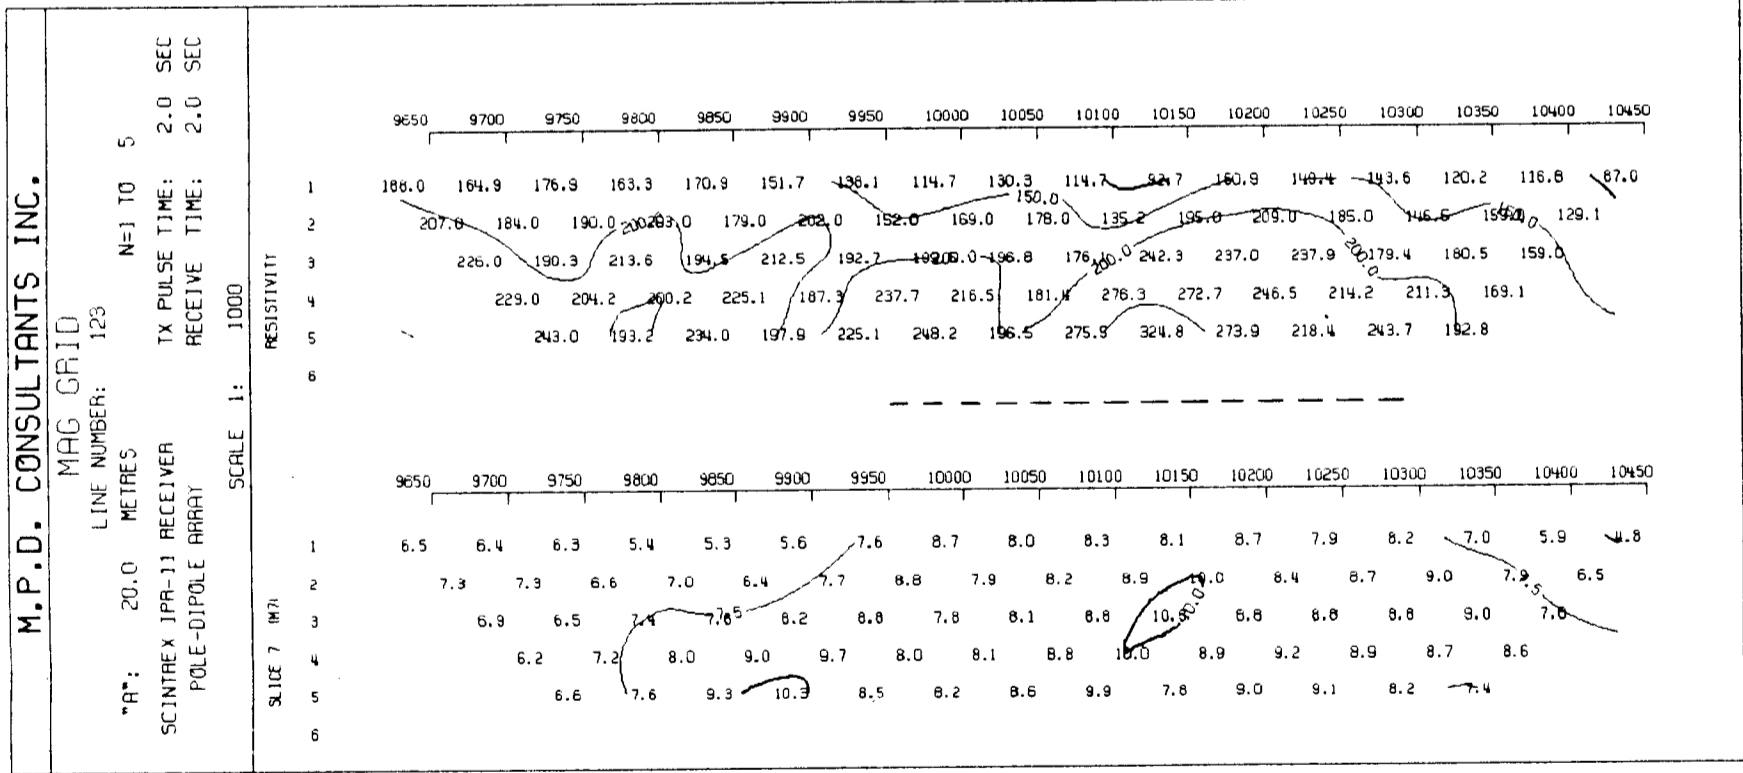 M.P.D. CONSULTANTS INC.
MAG GRID
LINE NUMBER: 123
"A": 20.0 METRES N=1 TO 5
SCINTREX IPR-11 RECEIVER TX PULSE TIME: 2.0 SEC
POLE-DIPOLE ARRAY RECEIVE TIME: 2.0 SEC
SCALE 1: 1000
RESISTIVITY
9650 9700 9750 9800 9850 9900 9950 10000 10050 10100 10150 10200 10250 10300 10350 10400 10450
1 188.0 164.9 176.9 163.3 170.9 151.7 138.1 114.7 130.3 114.7 92.7 160.9 149.4 143.6 120.2 116.8 87.0
150.0
2 207.0 184.0 190.0 200.0 179.0 202.0 152.0 169.0 178.0 135.2 195.0 209.0 185.0 146.6 150.0 129.1
3 226.0 190.3 213.6 194.5 212.5 192.7 200.0 196.8 176.1 200.0 242.3 237.0 237.9 200.0 179.4 180.5 159.0
4 229.0 204.2 200.2 225.1 187.3 237.7 216.5 181.4 276.3 272.7 246.5 214.2 211.3 169.1
5 243.0 193.2 234.0 197.9 225.1 248.2 196.5 275.9 324.8 273.9 218.4 243.7 192.8
6
SLICE 7 (M7)
9650 9700 9750 9800 9850 9900 9950 10000 10050 10100 10150 10200 10250 10300 10350 10400 10450
1 6.5 6.4 6.3 5.4 5.3 5.6 7.6 8.7 8.0 8.3 8.1 8.7 7.9 8.2 7.0 5.9 4.8
2 7.3 7.3 6.6 7.0 6.4 7.7 8.8 7.9 8.2 8.9 10.0 8.4 8.7 9.0 7.9 7.5 6.5
3 6.9 6.5 7.4 7.5 8.2 8.8 7.8 8.1 8.8 10.0 8.8 8.8 8.8 9.0
4 6.2 7.2 8.0 9.0 9.7 8.0 8.1 8.8 10.0 8.9 9.2 8.9 8.7 8.6
5 6.6 7.6 9.3 10.3 8.5 8.2 8.6 9.9 7.8 9.0 9.1 8.2 7.4
6